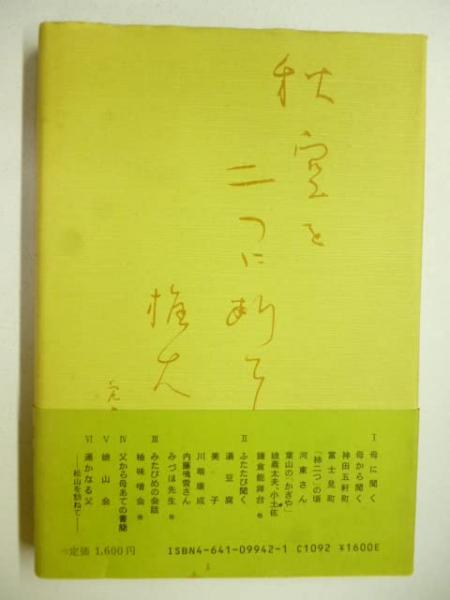 秋空を
二つに断て
椎大
Ⅰ 母に聞く
母から聞く
神田五軒町
富士見町
「柿二つ」の頃
河東さん
葉山の「かぎや」
娘義太夫、小土佐
鎌倉能舞台 他
Ⅱ ふたたび聞く
湯豆腐
美子
川端康成
内藤鳴雪さん
みづほ先生 他
Ⅲ みたびめの会話
柚味噌会 他
Ⅳ 父から母あての書簡
Ⅴ 山会
Ⅵ 遙かなる父
──松山を訪ねて──
定価 1,600円
ISBN4-641-09942-1 C1092 ¥1600E